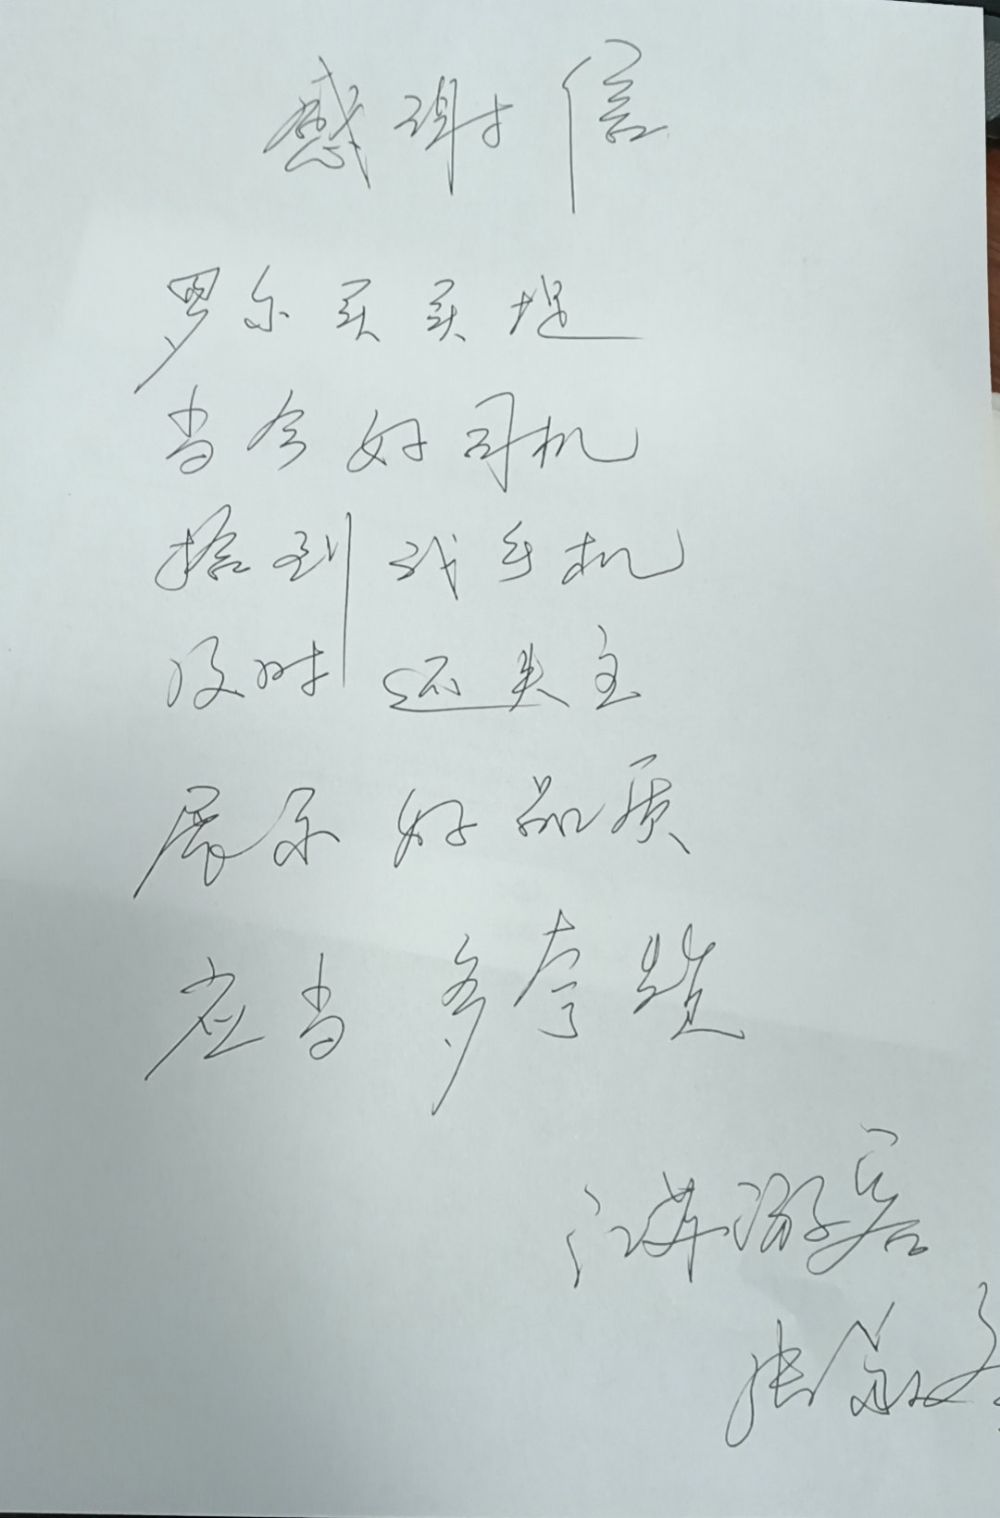 感谢信
罗尔买买提
当今好司机
捡到我手机
及时还失主
展示好品质
应当多夸赞
江苏游客
张